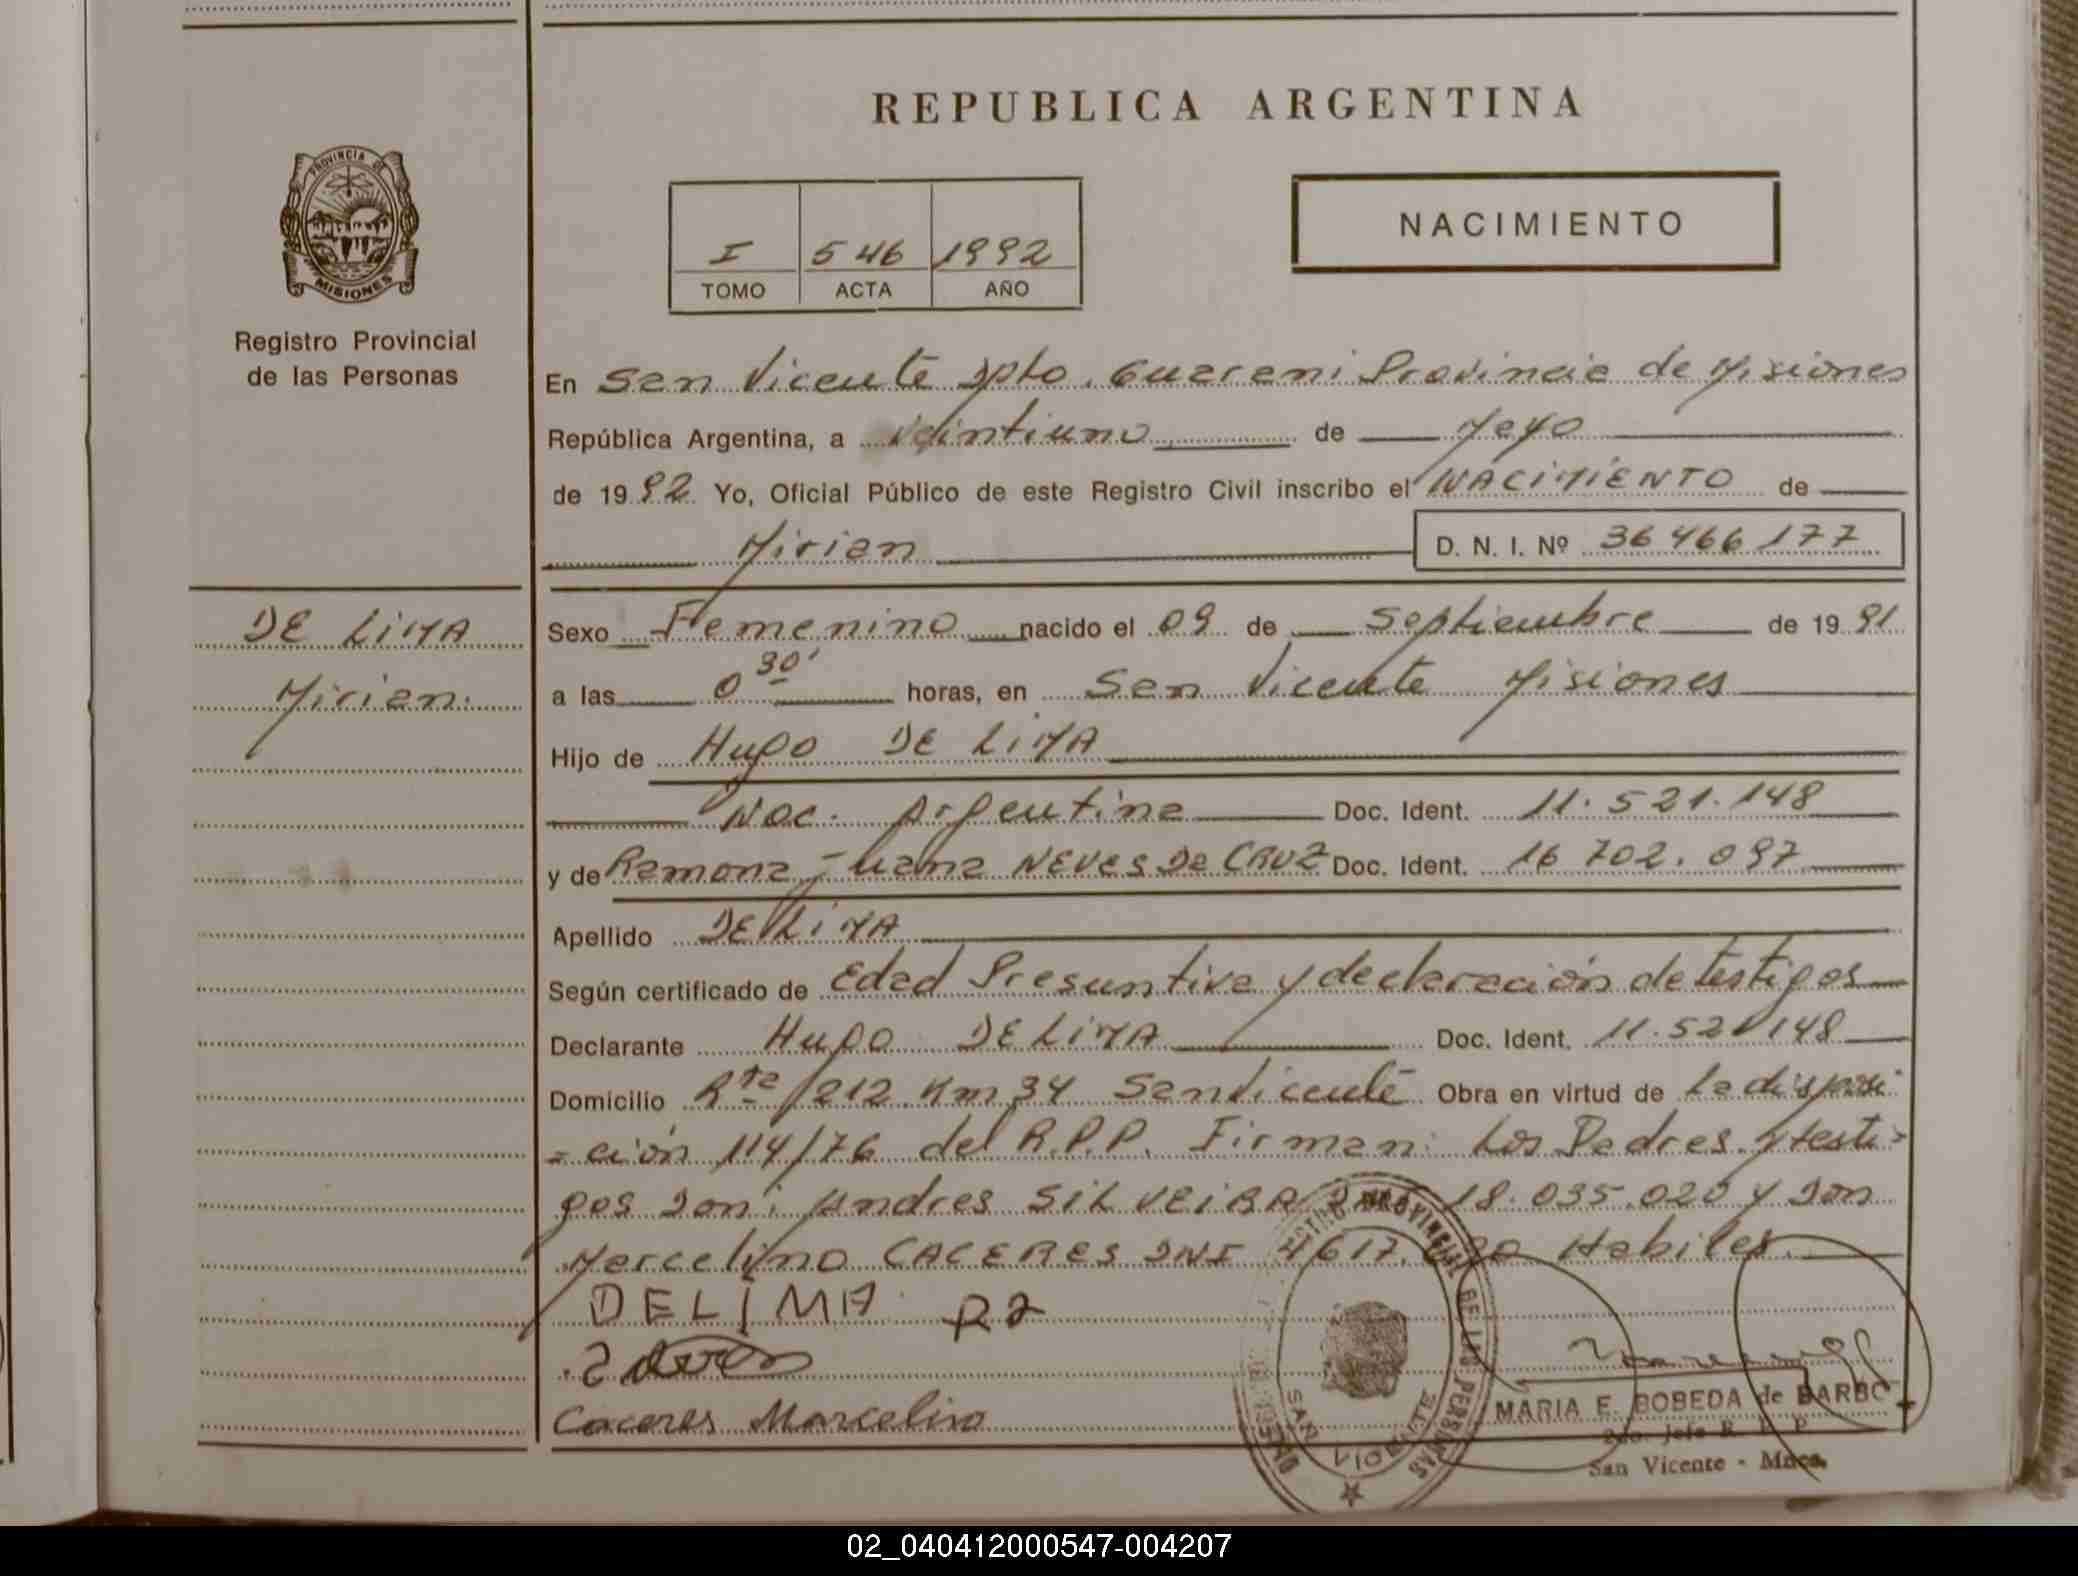 REPUBLICA ARGENTINA
PROVINCIA DE
MISIONES
Registro Provincial
de las Personas
I 546 1992
TOMO ACTA AÑO
NACIMIENTO
En San Vicente Dpto. Guarani Provincia de Misiones
República Argentina, a veintiuno de Mayo
de 1992 Yo, Oficial Público de este Registro Civil inscribo el NACIMIENTO de
Mirian D. N. I. Nº 36466177
DE LIMA
Mirian.
Sexo Femenino nacido el 09 de Septiembre de 1991
a las 0 30' horas, en San Vicente Misiones
Hijo de Hugo DE LIMA
Nac. Argentina Doc. Ident. 11.521.148
y de Ramona Juana NEVES DE CRUZ Doc. Ident. 16 702.097
Apellido DE LIMA
Según certificado de Edad Presuntiva y declaración de testigos
Declarante Hugo DE LIMA Doc. Ident. 11.521148
Domicilio Rta 212 Km 34 San Vicente Obra en virtud de la disposi
=ción 114/76 del R.P.P. Firman: Los Padres y testi=
gos Don: Andres SILVEIRA 18.035.020 y Don
Marcelino CACERES DNI Habiles.
DELIMA
Caceres Marcelino
PROVINCIAL DE LAS PERSONAS
SAN VICENTE
MARIA E. BOBEDA de BARBO
2do. Jefe R. P. P.
San Vicente - Mnes.
02_040412000547-004207